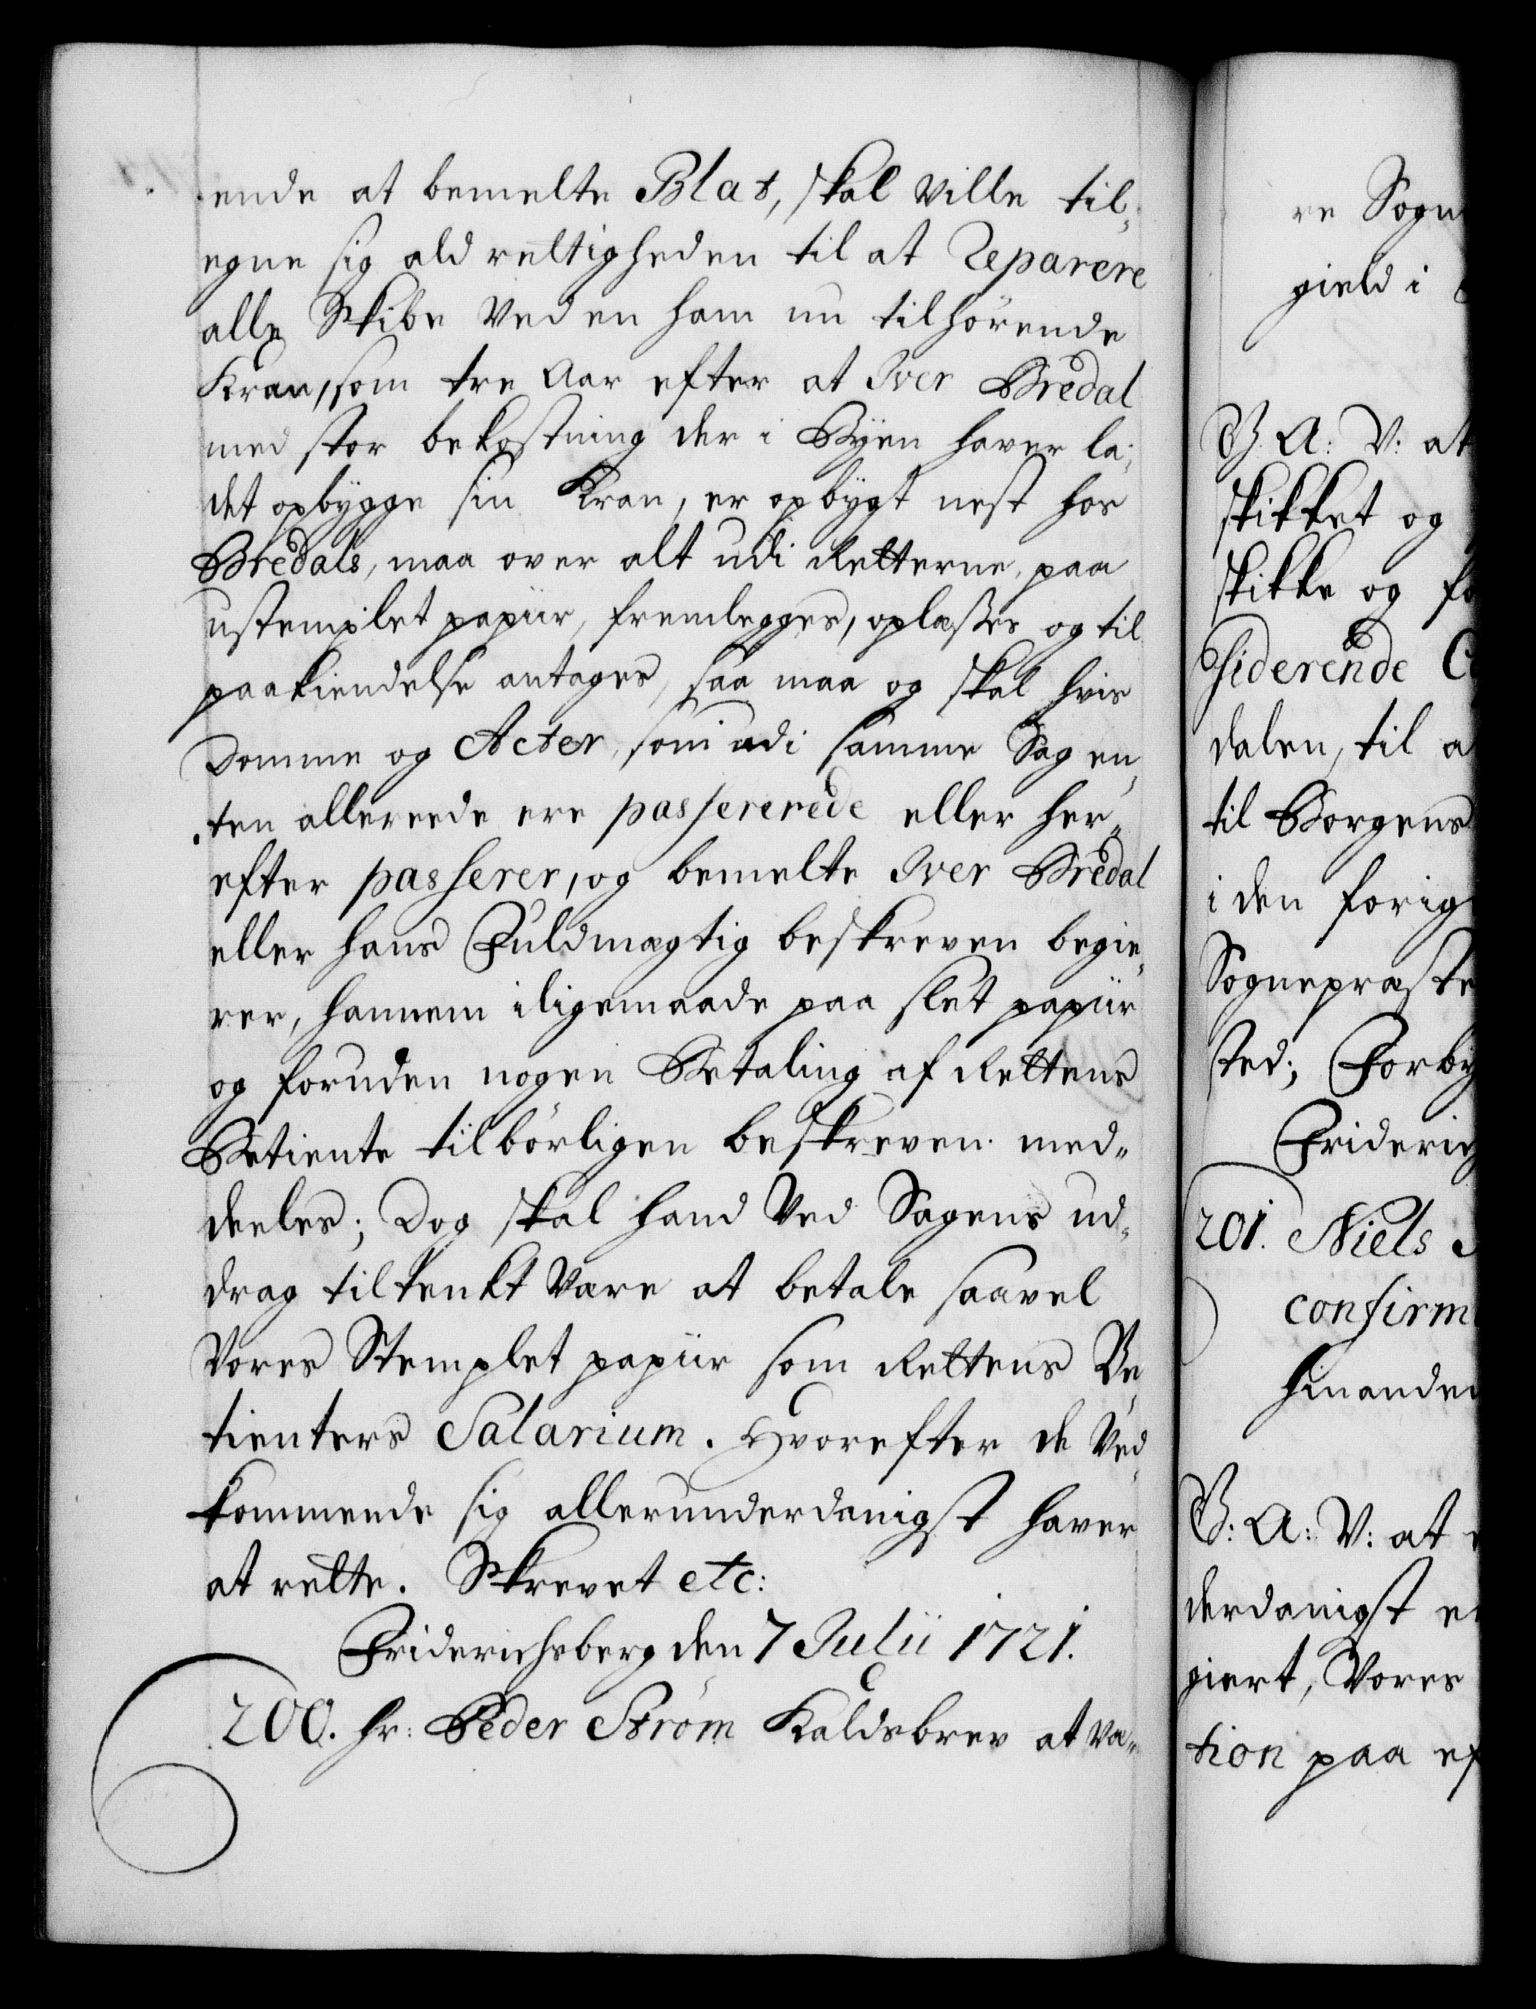 ende at bemelte Blat, skal ville til„
egne sig ald rettigheden til at Reparere
alle Skibe ved en ham nu tilhörende
Kran, som tre Aar efter at Iver Bredal
med stor bekostning der i Byen haver la„
det opbygge sin Kran, er opbygt nest hos
Bredals, maa over alt udi Retterne, paa
ustemplet papiir, fremlegges, oplæsses og til
paakiendelse antages, saa maa og skal hvis
Domme og Acter, som udi samme Sag en„
ten allereede ere passererede eller her„
efter passerer, og bemelte Iver Bredal
eller hans Fuldmægtig beskreven begie„
rer, hannem iligemaade paa slet papiir
og foruden nogen Betaling af Rettens
Betiente tilbörligen beskreven med„
deeles; Dog skal hand ved Sagens ud„
drag tiltenkt være at betale saavel
Vores Stemplet papiir som Rettens Be„
tienters Salarium. Hvorefter de Ved„
kommende sig allerunderdanigst haver
at rette. Skrevet etc:
Friderichsberg den 7 Julii 1721.
200. hr: Peder Strøm Kaldsbrev at væ„
re Sogn
gield i
G. A: V: at
skikket og
skikke og fo
siderende C
dalen, til a
til Borgens
i den forig
Sognepræste
sted; Forby
Friderich
201. Niels
confirm
hinanden
G: A: V: at
derdanigst er
giert, Vores
tion paa ef